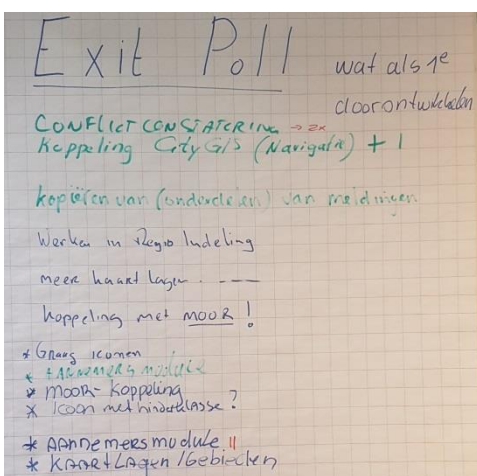 Exit Poll
wat als 1e
doorontwikkelen
CONFLICTCONSTATERING → 2x
Koppeling CityGIS (Navigatie) + 1
kopiëren van (onderdelen) van meldingen
Werken in Regio Indeling
meer kaart lagen. ---
koppeling met MOOR !
* Graag iconen
* AANNEMERS module
* MOOR- Koppeling
* Icoon met hinderklasse ?
* AANnemersmodule !!
* KAARtLAGen / Gebieden